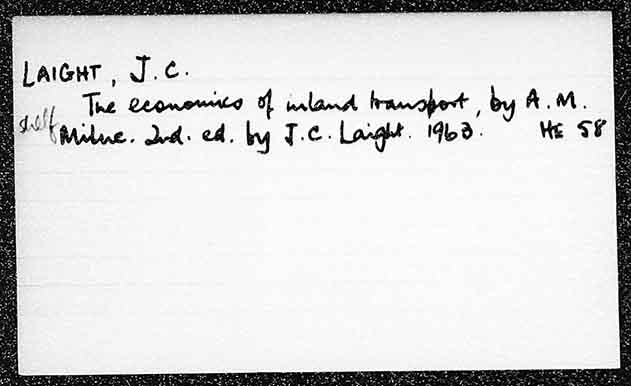 LAIGHT, J. C.
The economics of inland transport, by A. M.
shelf Milne. 2nd. ed. by J. C. Laight. 1963. HE 58